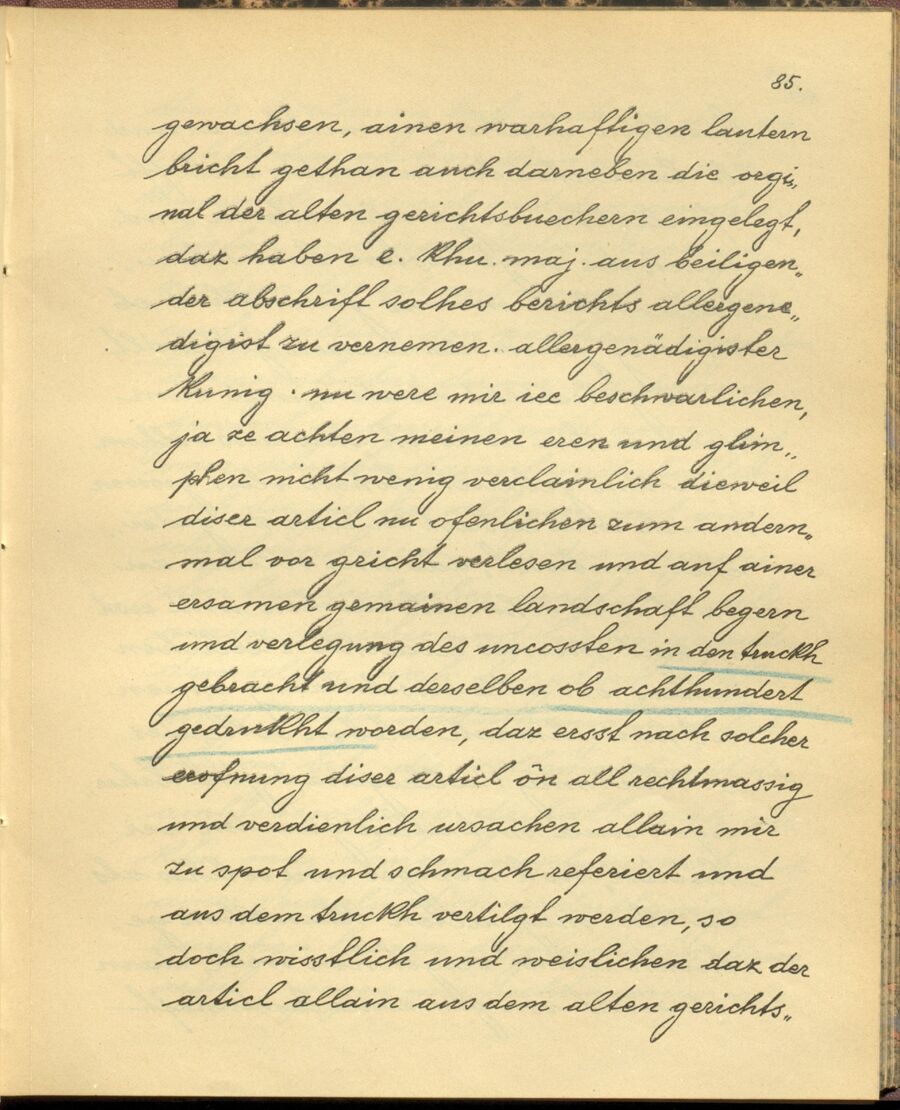 85.
gewachsen, ainen warhafftigen lautern
bricht gethan auch darneben die orgi„
nal der alten gerichtsbuechern eingelegt,
daz haben e. khu. maj. aus beiligen„
der abschrift solhes berichts allergene„
digist zu vernemen. allergenädigister
Kunig. nu were mir iec beschwarlichen,
ja ze achten meinen eren und glim„
phen nicht wenig verclainlich dieweil
diser articl nu ofenlichen zum andern„
mal vor gricht verlesen und auf ainer
ersamen gemainen landschaft begern
und verlegung des uncossten in den truckh
gebracht und derselben ob achthundert
gedrukht worden, daz ersst nach solcher
erofnung diser articl ön all rechtmassig
und verdienlich ursachen allain mir
zu spot und schmach referiert und
aus dem truckh vertilgt werden, so
doch wisstlich und weislichen daz der
articl allain aus dem alten gerichts„